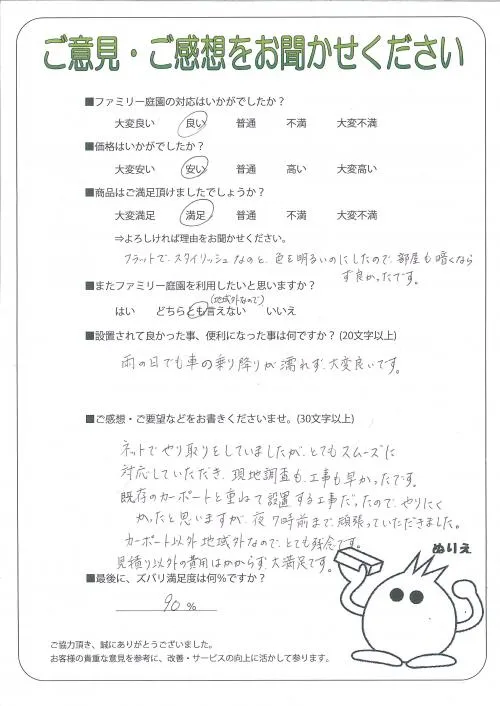 ご意見・ご感想をお聞かせください
■ファミリー庭園の対応はいかがでしたか？
大変良い 良い 普通 不満 大変不満
■価格はいかがでしたか？
大変安い 安い 普通 高い 大変高い
■商品はご満足頂けましたでしょうか？
大変満足 満足 普通 不満 大変不満
⇒よろしければ理由をお聞かせください。
フラットで、スタイリッシュなのと、色を明るいのにしたので、部屋も暗くなら
ず良かったです。
■またファミリー庭園を利用したいと思いますか？
(地域外なので)
はい どちらとも言えない いいえ
■設置されて良かった事、便利になった事は何ですか？(20文字以上)
雨の日でも車の乗り降りが濡れず、大変良いです。
■ご感想・ご要望などをお書きくださいませ。(30文字以上)
ネットでやり取りをしていましたが、とてもスムーズに
対応していただき、現地調査も、工事も早かったです。
既存のカーポートと重ねて設置する工事だったので、やりにく
かったと思いますが、夜7時前まで、頑張っていただきました。
カーポート以外地域外なので、とても残念です。
見積り以外の費用はかからず、大満足です。
ぬりえ
■最後に、ズバリ満足度は何％ですか？
90 %
ご協力頂き、誠にありがとうございました。
お客様の貴重な意見を参考に、改善・サービスの向上に活かして参ります。